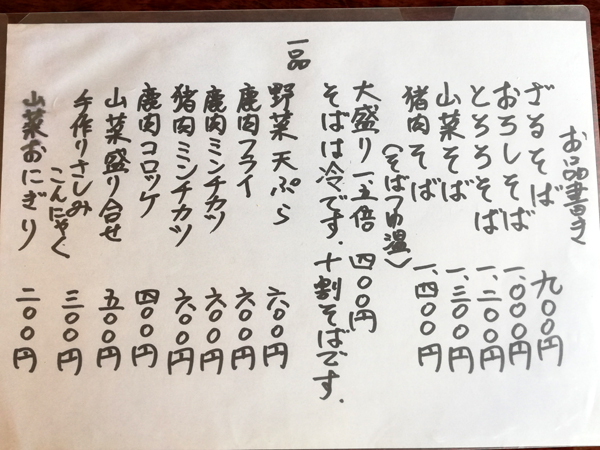 お品書き
ざるそば 九〇〇円
おろしそば 一、〇〇〇円
とろろそば 一、二〇〇円
山菜そば 一、三〇〇円
猪肉そば 一、四〇〇円
（そばつゆ温）
大盛り一五倍 四〇〇円
そばは冷です．十割そばです．
一品
野菜天ぷら 六〇〇円
鹿肉フライ 六〇〇円
鹿肉ミンチカツ 六〇〇円
猪肉ミンチカツ 六〇〇円
鹿肉コロッケ 四〇〇円
山菜盛り合せ 五〇〇円
手作りさしみ
こんにゃく 三〇〇円
山菜おにぎり 二〇〇円